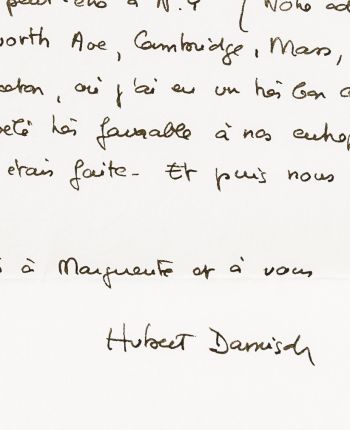 à N.Y (Notre ad
orth Ave, Cambridge, Mass,
ston, où j'ai eu un très bon
été très favorable à nos entrep
étais faite - Et puis nous
à Marguerite et à vous
Hubert Damisch